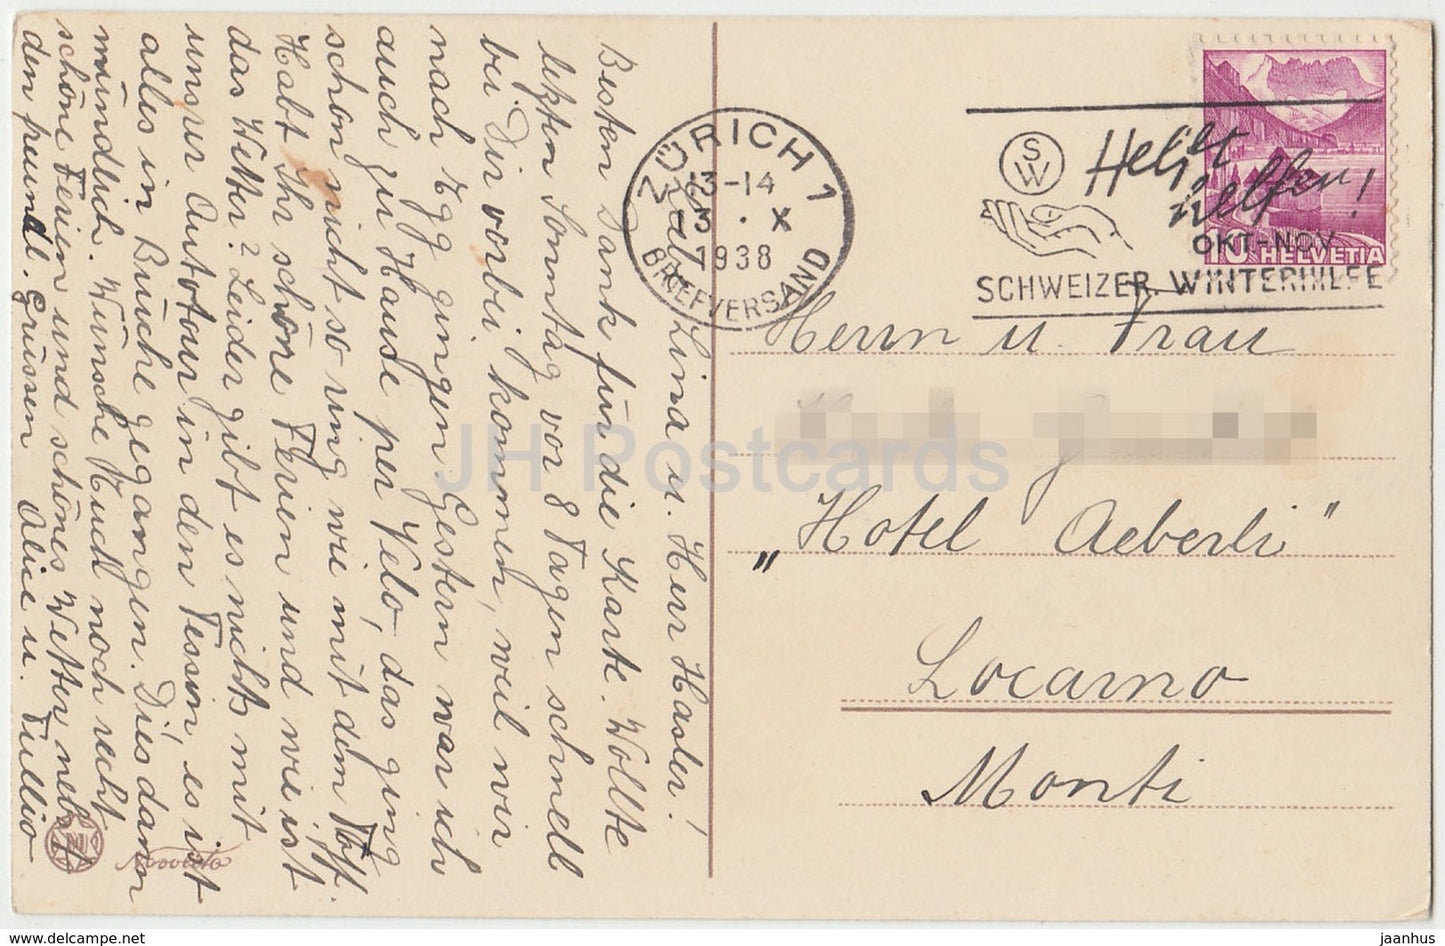 Liebe Lina u. Herr Hasler!
Besten Dank für die Karte. Wollte
letzten Sonntag vor 8 Tagen schnell
bei Dir vorbei kommen, weil wir
nach Egg gingen. Gestern war ich
auch zu Hause per Velo, das ging
schon nicht so ring wie mit dem Töff.
Habt Ihr schöne Ferien und wie ist
das Wetter? Leider gibt es nichts mit
unser Autotour in den Tessin, es ist
alles in Brüche gegangen. Dies dann
mündlich. Wünsche Euch noch recht
schöne Ferien und schönes Wetter nebst
den freundl. Grüssen Alice u. Tullio
Novocolo
ZÜRICH 1
13-14
3.X
1938
BRIEFVERSAND
SW
Helft helfen!
OKT-NOV
SCHWEIZER. WINTERHILFE
10 HELVETIA
Herrn u. Frau
„Hotel Aeberli"
Locarno
Monti
JH Postcards
www.delcampe.net
jaanhus